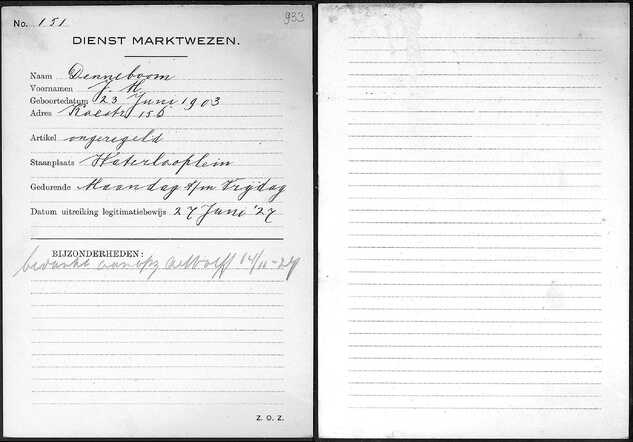 No. 151 933
DIENST MARKTWEZEN.
Naam Denneboom
Voornamen J. M.
Geboortedatum 23 Juni 1903
Adres 156
Artikel ongeregeld
Staanplaats Waterlooplein
Gedurende Maandag t/m Vrijdag
Datum uitreiking legitimatiebewijs 27 Juni '27
BIJZONDERHEDEN:
14/11-27
Z. O. Z.